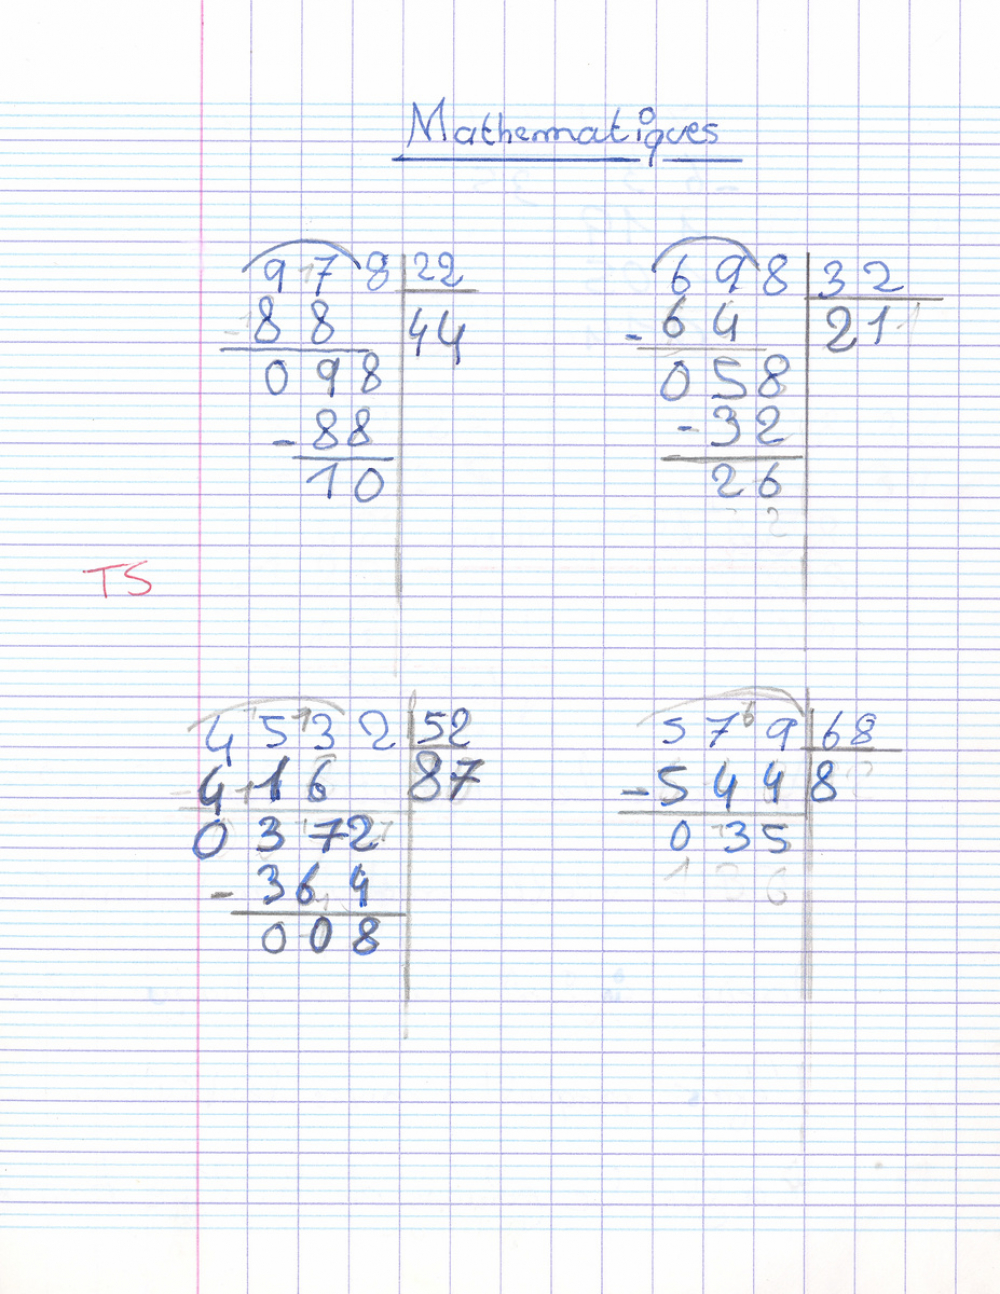 Mathematiques
978 22
-88 44
098
-88
10
698 32
-64 21
058
-32
26
TS
4532 52
-416 87
0372
-364
008
579 68
-544 8
035